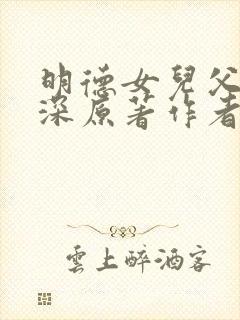 明德女兒父
深原著作者
雲上醉酒客